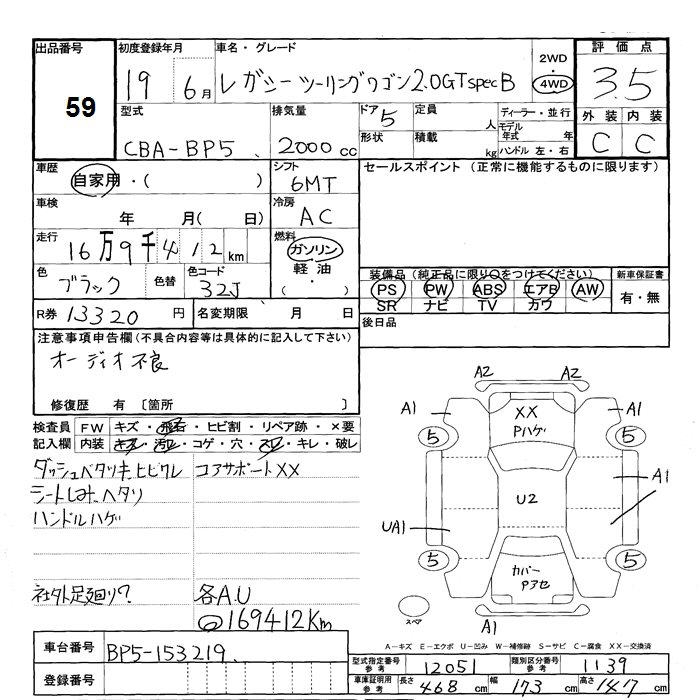 出品番号 初度登録年月 車名・グレード 2WD 評価点
59 19 6月 レガシーツーリングワゴン2.0GTspecB 4WD 3.5
型式 排気量 ドア 5 定員 人 ディーラー・並行 外装 内装
CBA-BP5 2000cc 形状 積載 kg モデル年式 年 ハンドル 左・右 C C
車歴 自家用・( ) シフト 6MT セールスポイント (正常に機能するものに限ります)
車検 年 月( 日) 冷房 AC
走行 16万9千412km 燃料 ガソリン 軽油 ・( )
色 ブラック 色替 色コード 32J 装備品(純正品に限り○をつけてください) 新車保証書
PS PW ABS エアB AW 有・無
SR ナビ TV カワ
R券 13320円 名変期限 月 日 後日品
注意事項申告欄(不具合内容等は具体的に記入して下さい)
オーディオ不良
修復歴 有 〔箇所 〕
検査員 FW キズ・飛石・ヒビ割・リペア跡・×要
記入欄 内装 キズ・汚レ・コゲ・穴・スレ・キレ・破レ
ダッシュベタツキ、ヒビワレ コアサポートXX
シートしみ、ヘタリ
ハンドルハゲ
社外足廻り? 各A.U
169412Km
A2 A2
A1 XX A1
5 Pハゲ 5
U2 A1
UA1
5 カバー 5
Pアセ
スペア A1
A-キズ E-エクボ U-凹み W-補修跡 S-サビ C-腐食 XX-交換済
車台番号 BP5-153219 型式指定番号 参考 12051 類別区分番号 参考 1139
登録番号 車庫証明用 参考 長さ 468cm 幅 173cm 高さ 147cm